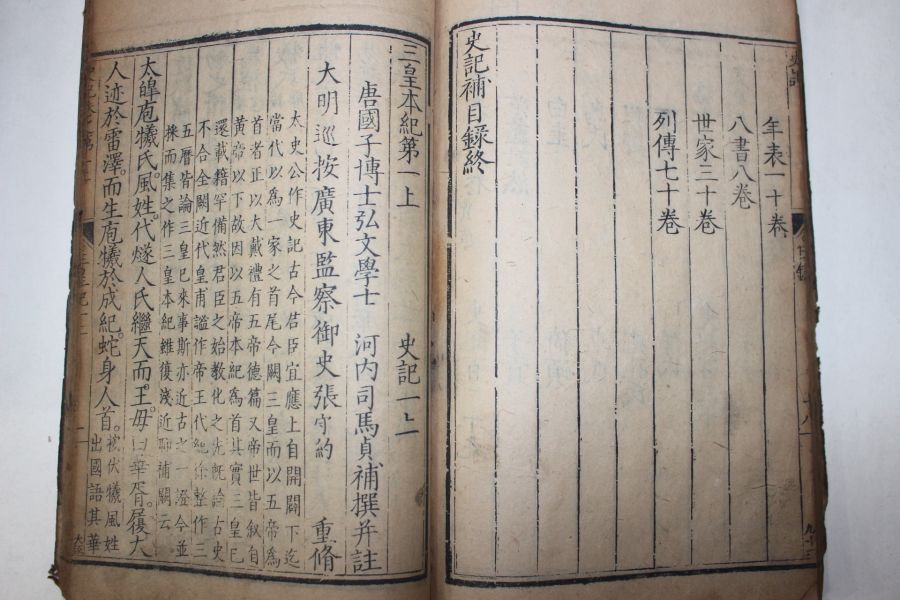 年表一十卷
八書八卷
世家三十卷
列傳七十卷
史記補目錄終
三皇本紀第一上 史記一上
唐國子博士弘文學士 河內司馬貞補撰并註
大明巡按廣東監察御史張守約 重脩
太史公作史記古今君臣宜應上自開闢下迄
當代以爲一家之首尾今闕三皇而以五帝爲
首者正以大戴禮有五帝德篇又帝世皆叙自
黃帝以下故因以五帝本紀爲首其實三皇已
還載籍罕備然君臣之始教化之先既論古史
不合全闕近代皇甫謐作帝王代紀徐整作三
五曆皆論三皇已來事斯亦近古之一證今並
採而集之作三皇本紀雖復淺近聊補闕云
太皥庖犧氏風姓代燧人氏繼天而王母曰華胥履大
人迹於雷澤而生庖犧於成紀蛇身人首按伏犧風姓
出國語其華